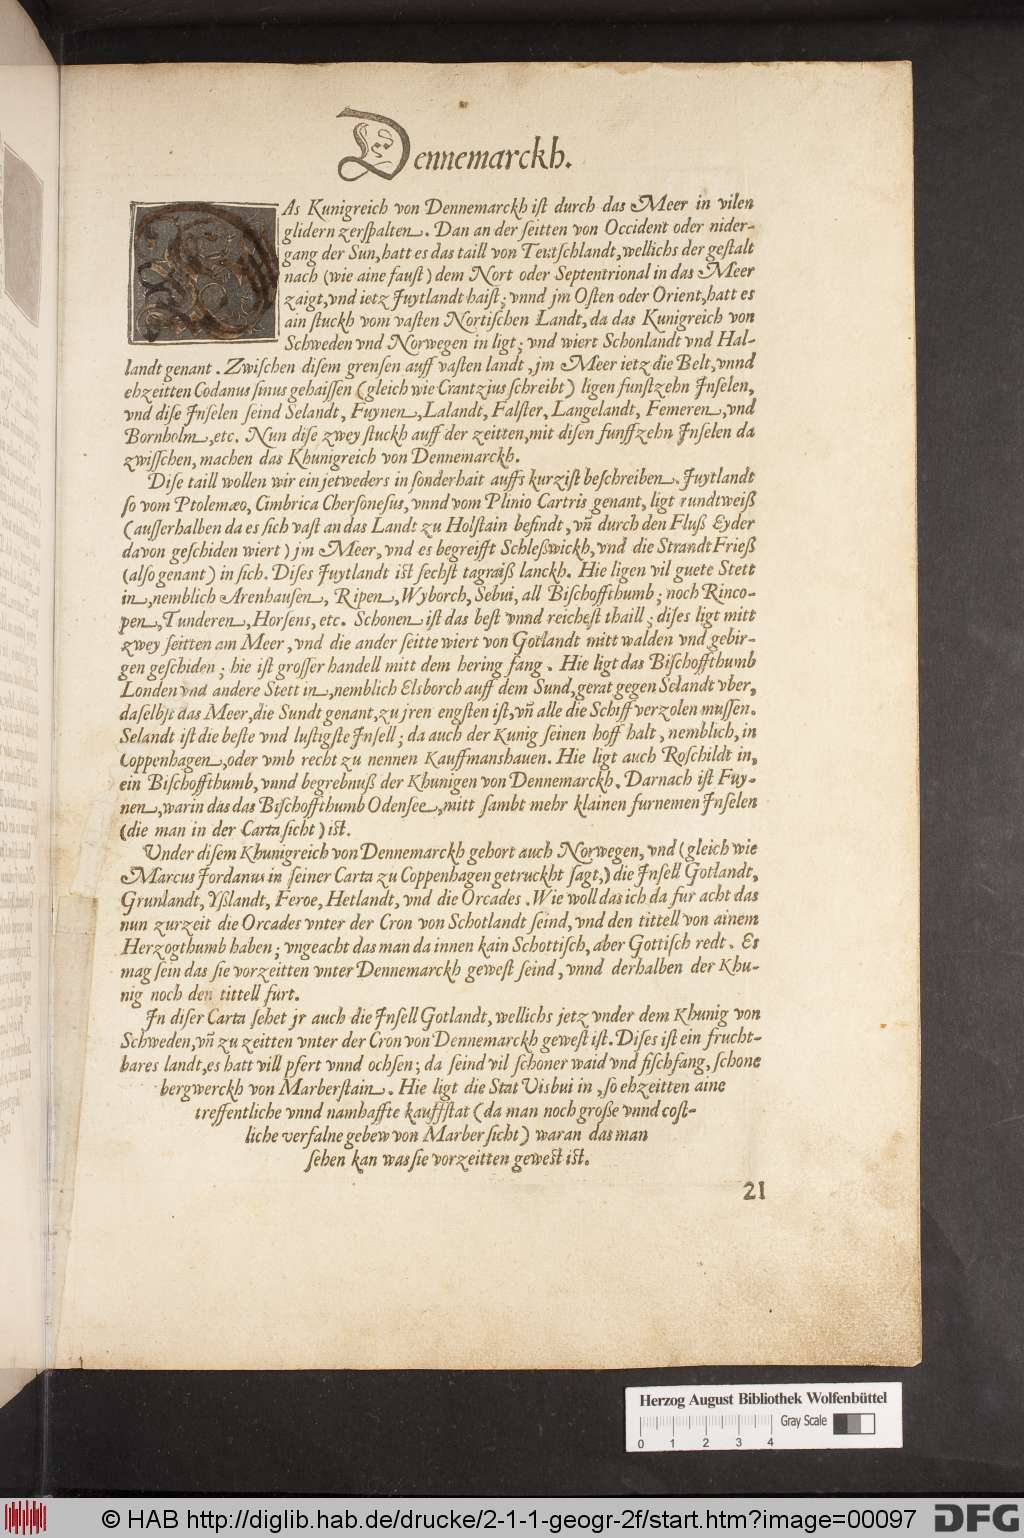 Dennemarckh.
DAs Kunigreich von Dennemarckh ist durch das Meer in vilen
glidern zerspalten. Dan an der seitten von Occident oder nider-
gang der Sun, hatt es das taill von Teutschlandt, wellichs der gestalt
nach (wie aine faust) dem Nort oder Septentrional in das Meer
zaigt, vnd ietz Juytlandt haist; vnnd jm Osten oder Orient, hatt es
ain stuckh vom vasten Nortischen Landt, da das Kunigreich von
Schweden vnd Norwegen in ligt; vnd wiert Schonlandt vnd Hal-
landt genant. Zwischen disem grensen auff vasten landt, jm Meer ietz die Belt, vnnd
ehzeitten Codanus sinus gehaissen (gleich wie Crantzius schreibt) ligen funstzehn Jnselen,
vnd dise Jnselen seind Selandt, Fuynen, Lalandt, Falster, Langelandt, Femeren, vnd
Bornholm, etc. Nun dise zwey stuckh auff der zeitten, mit disen funffzehn Jnselen da
zwisschen, machen das Khunigreich von Dennemarckh.
Dise taill wollen wir ein jetweders in sonderhait auffs kurzist beschreiben. Juytlandt
so vom Ptolemæo, Cimbrica Chersonesus, vnnd vom Plinio Cartris genant, ligt rundtweiß
(ausserhalben da es sich vast an das Landt zu Holstain befindt, vñ durch den Fluß Eyder
davon geschiden wiert) jm Meer, vnd es begreifft Schleßwickh, vnd die Strandt Frieß
(also genant) in sich. Dises Juytlandt ist sechst tagraiß lanckh. Hie ligen vil guete Stett
in, nemblich Arenhausen, Ripen, Wyborch, Sebui, all Bischoffthumb; noch Rinco-
pen, Tunderen, Horsens, etc. Schonen ist das best vnnd reichest thaill; dises ligt mitt
zwey seitten am Meer, vnd die ander seitte wiert von Gotlandt mitt walden vnd gebir-
gen geschiden; hie ist grosser handell mitt dem hering fang. Hie ligt das Bischoffthumb
Londen vnd andere Stett in, nemblich Elsborch auff dem Sund, gerat gegen Selandt vber,
daselbst das Meer, die Sundt genant, zu jren engsten ist, vñ alle die Schiff verzolen mussen.
Selandt ist die beste vnd lustigste Jnsell; da auch der Kunig seinen hoff halt, nemblich, in
Coppenhagen, oder vmb recht zu nennen Kauffmanshauen. Hie ligt auch Roschildt in,
ein Bischoffthumb, vnnd begrebnuß der Khunigen von Dennemarckh. Darnach ist Fuy-
nen, warin das das Bischoffthumb Odensee, mitt sambt mehr klainen furnemen Jnselen
(die man in der Carta sicht) ist.
Under disem Khunigreich von Dennemarckh gehort auch Norwegen, vnd (gleich wie
Marcus Jordanus in seiner Carta zu Coppenhagen getruckht sagt,) die Jnsell Gotlandt,
Grunlandt, Yßlandt, Feroe, Hetlandt, vnd die Orcades. Wie woll das ich da fur acht das
nun zurzeit die Orcades vnter der Cron von Schotlandt seind, vnd den tittell von ainem
Herzogthumb haben; vngeacht das man da innen kain Schottisch, aber Gottisch redt. Es
mag sein das sie vorzeitten vnter Dennemarckh gewest seind, vnnd derhalben der Khu-
nig noch den tittell furt.
Jn diser Carta sehet jr auch die Jnsell Gotlandt, wellichs jetz vnder dem Khunig von
Schweden, vñ zu zeitten vnter der Cron von Dennemarckh gewest ist. Dises ist ein frucht-
bares landt, es hatt vill pfert vnnd ochsen; da seind vil schoner waid vnd fischfang, schone
bergwerckh von Marberstain. Hie ligt die Stat Uisbui in, so ehzeitten aine
treffentliche vnnd namhaffte kauffstat (da man noch große vnnd cost-
liche verfalne gebew von Marber sicht) waran das man
sehen kan was sie vorzeitten gewest ist.
21
Herzog August Bibliothek Wolfenbüttel
Gray Scale
0 1 2 3 4
© HAB http://diglib.hab.de/drucke/2-1-1-geogr-2f/start.htm?image=00097
DFG